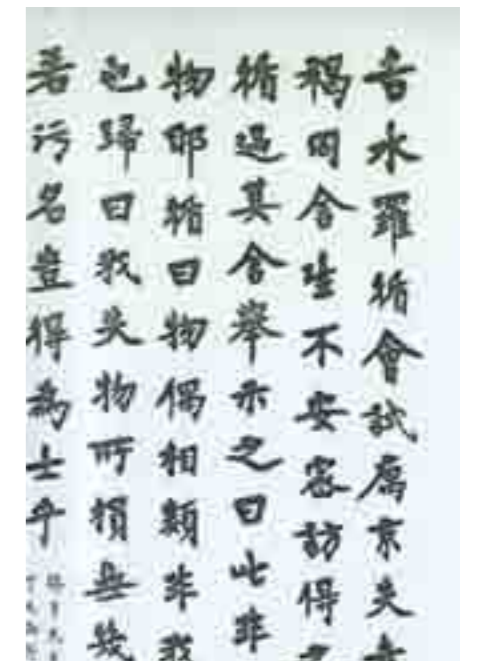 吉水羅循會試寓京失去
褐同舍生不安密訪得之
循過其舍舉示之曰此非
物邪循曰物偶相類非我
也歸曰我失物所損無幾
若污名豈得為士乎